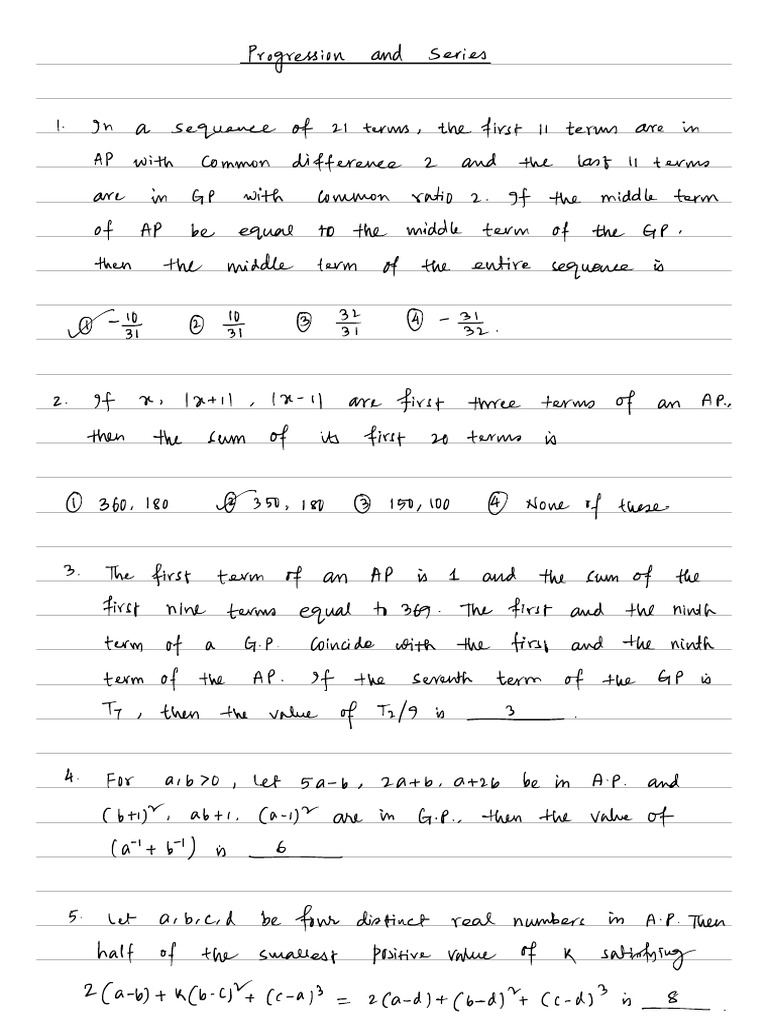 Progression and Series
1. In a sequence of 21 terms, the first 11 terms are in
AP with common difference 2 and the last 11 terms
are in GP with common ratio 2. If the middle term
of AP be equal to the middle term of the GP.
then the middle term of the entire sequence is
✓① -10/31 ② 10/31 ③ 32/31 ④ -31/32.
2. If x, |x+1|, |x-1| are first three terms of an AP.,
then the sum of its first 20 terms is
① 360, 180 ✓② 350, 180 ③ 150, 100 ④ None of these.
3. The first term of an AP is 1 and the sum of the
first nine terms equal to 369. The first and the ninth
term of a G.P. coincide with the first and the ninth
term of the AP. If the seventh term of the GP is
T7, then the value of T2/9 is 3.
4. For a,b>0, let 5a-b, 2a+b, a+2b be in A.P. and
(b+1)², ab+1, (a-1)² are in G.P., then the value of
(a⁻¹ + b⁻¹) is 6
5. Let a,b,c,d be four distinct real numbers in A.P. Then
half of the smallest positive value of K satisfying
2(a-b) + K(b-c)² + (c-a)³ = 2(a-d) + (b-d)² + (c-d)³ is 8